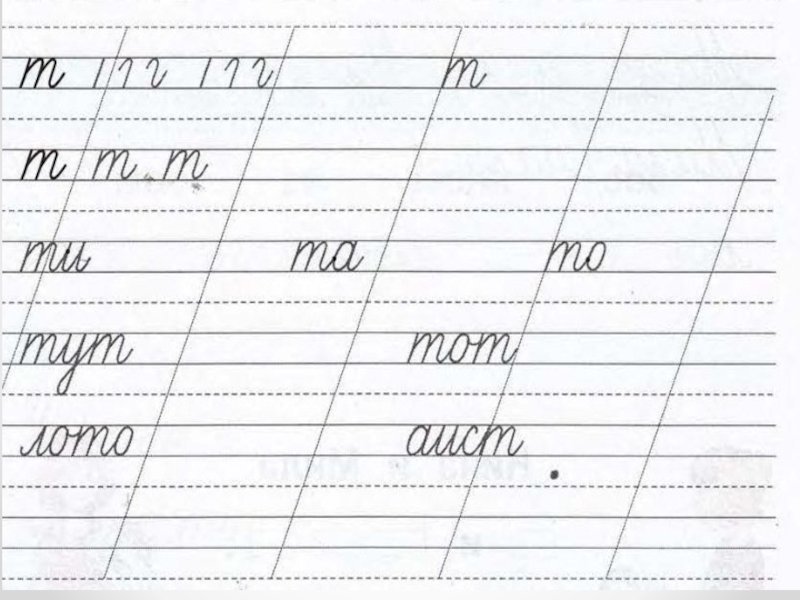 т т
т т т
ти та то
тут тот
лото аист.